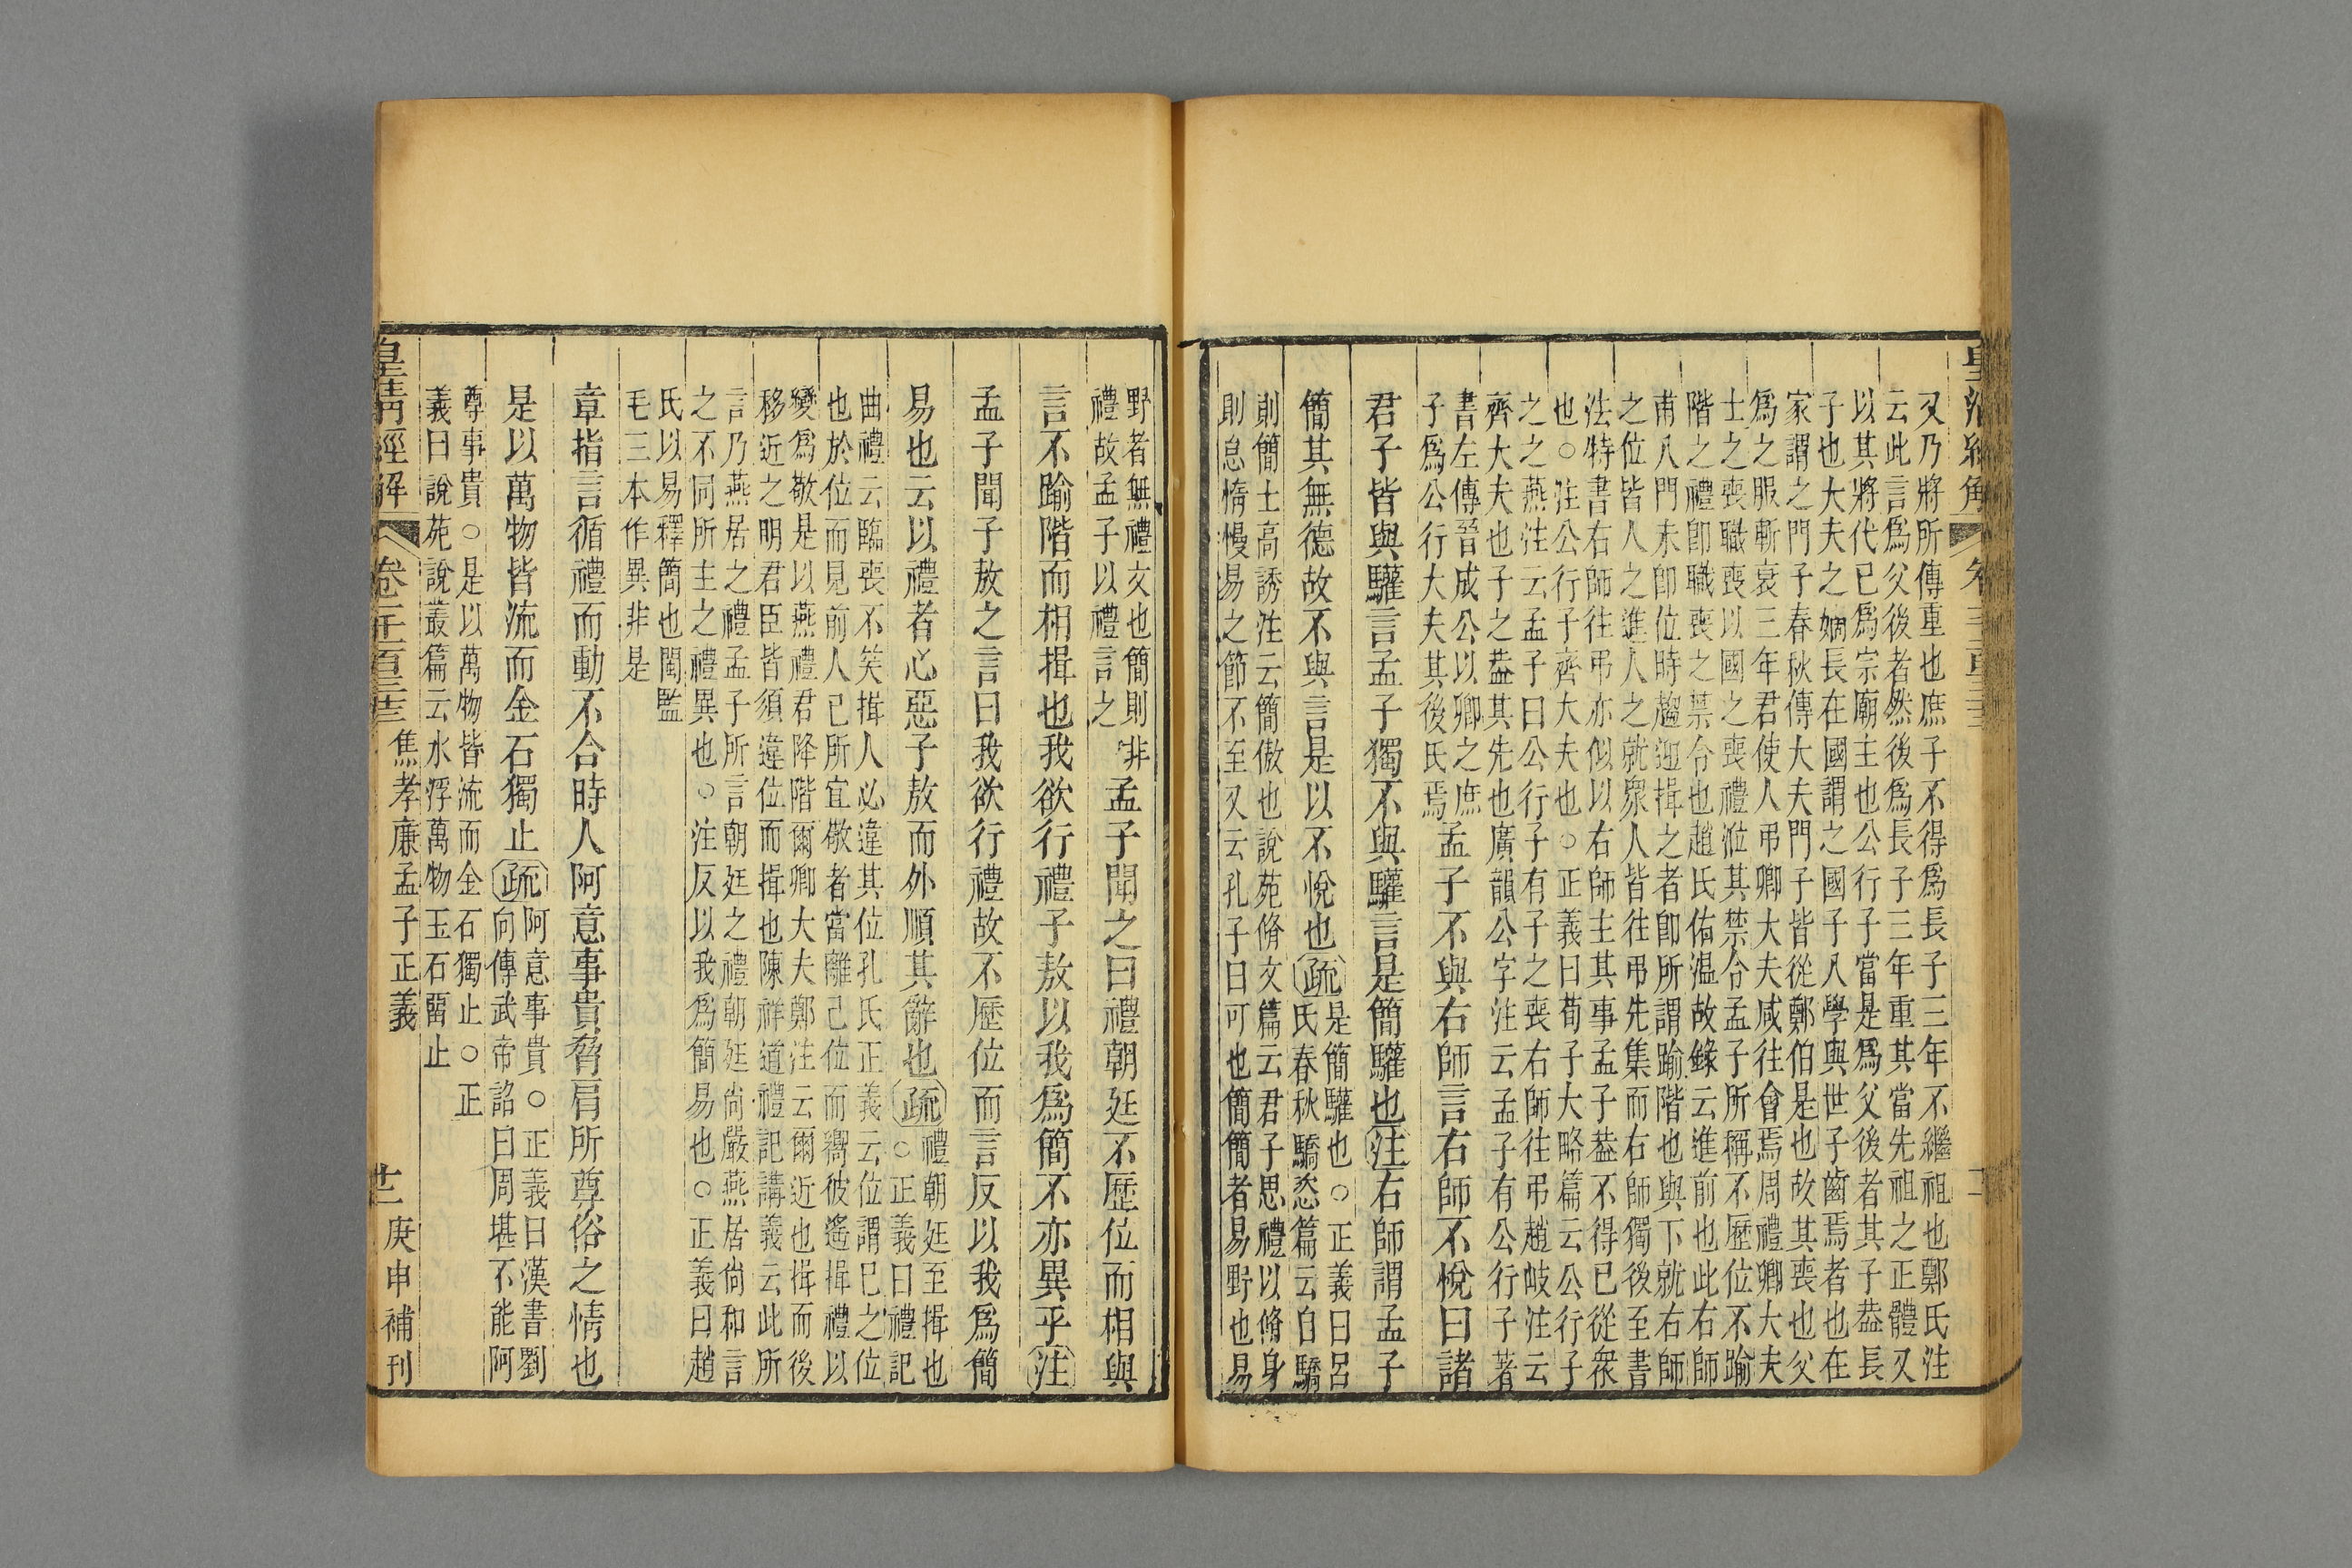 又乃將所傳重也庶子不得爲長子三年不繼祖也鄭氏注
云此言爲父後者然後爲長子三年重其當先祖之正體又
以其將代已爲宗廟主也公行子當是爲父後者其子葢長
子也大夫之嫡長在國謂之國子入學與世子齒焉者也在
家謂之門子春秋傳大夫門子皆從鄭伯是也故其喪也父
爲之服斬衰三年君使人弔卿大夫咸往會焉周禮卿大夫
士之喪職喪以國之喪禮涖其禁令孟子所稱不歷位不踰
階之禮卽職喪之禁令也趙氏佑溫故錄云進前也此右師
甫入門未卽位時趨迎揖之者卽所謂踰階也與下就右師
之位皆人之進人之就衆人皆往弔先集而右師獨後至書
法特書右師往弔亦似以右師主其事孟子葢不得已從衆
也○注公行子齊大夫也○正義曰荀子大略篇云公行子
之之燕注云孟子曰公行子有子之喪右師往弔趙岐注云
齊大夫也子之葢其先也廣韻公字注云孟子有公行子著
書左傳晉成公以卿之庶
子爲公行大夫其後氏焉
孟子不與右師言右師不悅曰諸
君子皆與驩言孟子獨不與驩言是簡驩也注右師謂孟子
簡其無德故不與言是以不悅也疏
是簡驩也○正義曰呂
氏春秋驕恣篇云自驕
則簡士高誘注云簡傲也說苑脩文篇云君子思禮以脩身
則怠惰慢易之節不至又云孔子曰可也簡簡者易野也易
野者無禮文也簡則非
禮故孟子以禮言之
孟子聞之曰禮朝廷不歷位而相與
言不踰階而相揖也我欲行禮子敖以我爲簡不亦異乎注
孟子聞子敖之言曰我欲行禮故不歷位而言反以我爲簡
易也云以禮者心惡子敖而外順其辭也疏
禮朝廷至揖也
○正義曰禮記
曲禮云臨喪不笑揖人必違其位孔氏正義云位謂巳之位
也於位而見前人已所宜敬者當離己位而嚮彼遙揖禮以
變爲敬是以燕禮君降階爾卿大夫鄭注云爾近也揖而後
移近之明君臣皆須違位而揖也陳祥道禮記講義云此所
言乃燕居之禮孟子所言朝廷之禮朝廷尚嚴燕居尚和言
之不同所主之禮異也○注反以我爲簡易也○正義曰趙
氏以易釋簡也閩監
毛三本作異非是
章指言循禮而動不合時人阿意事貴脅肩所尊俗之情也
是以萬物皆流而金石獨止疏
阿意事貴○正義曰漢書劉
向傳武帝詔曰周堪不能阿
尊事貴○是以萬物皆流而金石獨止○正
義曰說苑說叢篇云水浮萬物玉石留止
皇淸經解 卷 焦孝廉孟子正義 庚申補刊